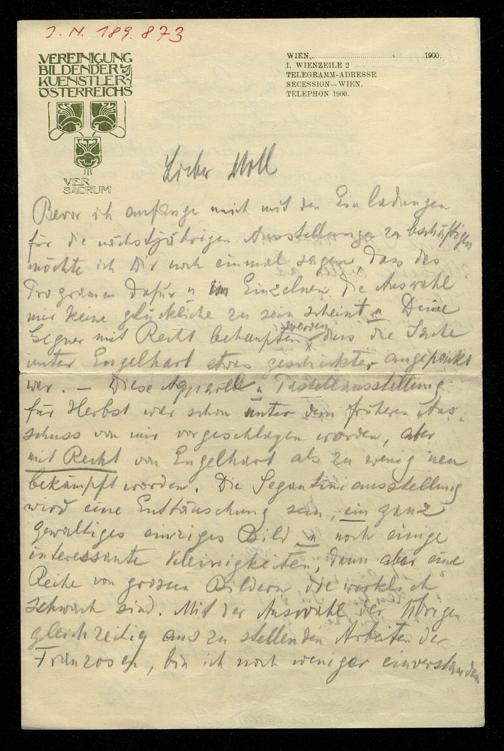 J. N. 189.873
VEREINIGUNG
BILDENDER
KUENSTLER
ÖSTERREICHS
VER
SACRUM
WIEN, 1900.
I. WIENZEILE 2
TELEGRAMM-ADRESSE
SECESSION—WIEN.
TELEPHON 1960.
Lieber Moll
Bevor ich anfange mich mit den Einladungen
für die nächstjährigen Ausstellungen zu beschäftigen
möchte ich Dir noch einmal sagen, dass das
Programm dafür u im Einzelnen die Auswahl
mir keine glückliche zu sein scheint u Deine
Gegner mit Recht behaupten werden, dass die Sache
unter Engelhart etwas geschickter angepackt
war. — Diese Aquarell u Pastellausstellung
für Herbst war schon unter dem früheren Aus-
schuss von mir vorgeschlagen worden, aber
mit Recht von Engelhart als zu wenig neu
bekämpft worden. Die Segantiniausstellung
wird eine Enttäuschung sein, ein ganz
gewaltiges einziges Bild u noch einige
interessante Kleinigkeiten, dann aber eine
Reihe von grossen Bildern die wirklich
schwach sind. Mit der Auswahl der übrigen
gleichzeitig auszustellenden Arbeiten der
Franzosen, bin ich noch weniger einverstanden